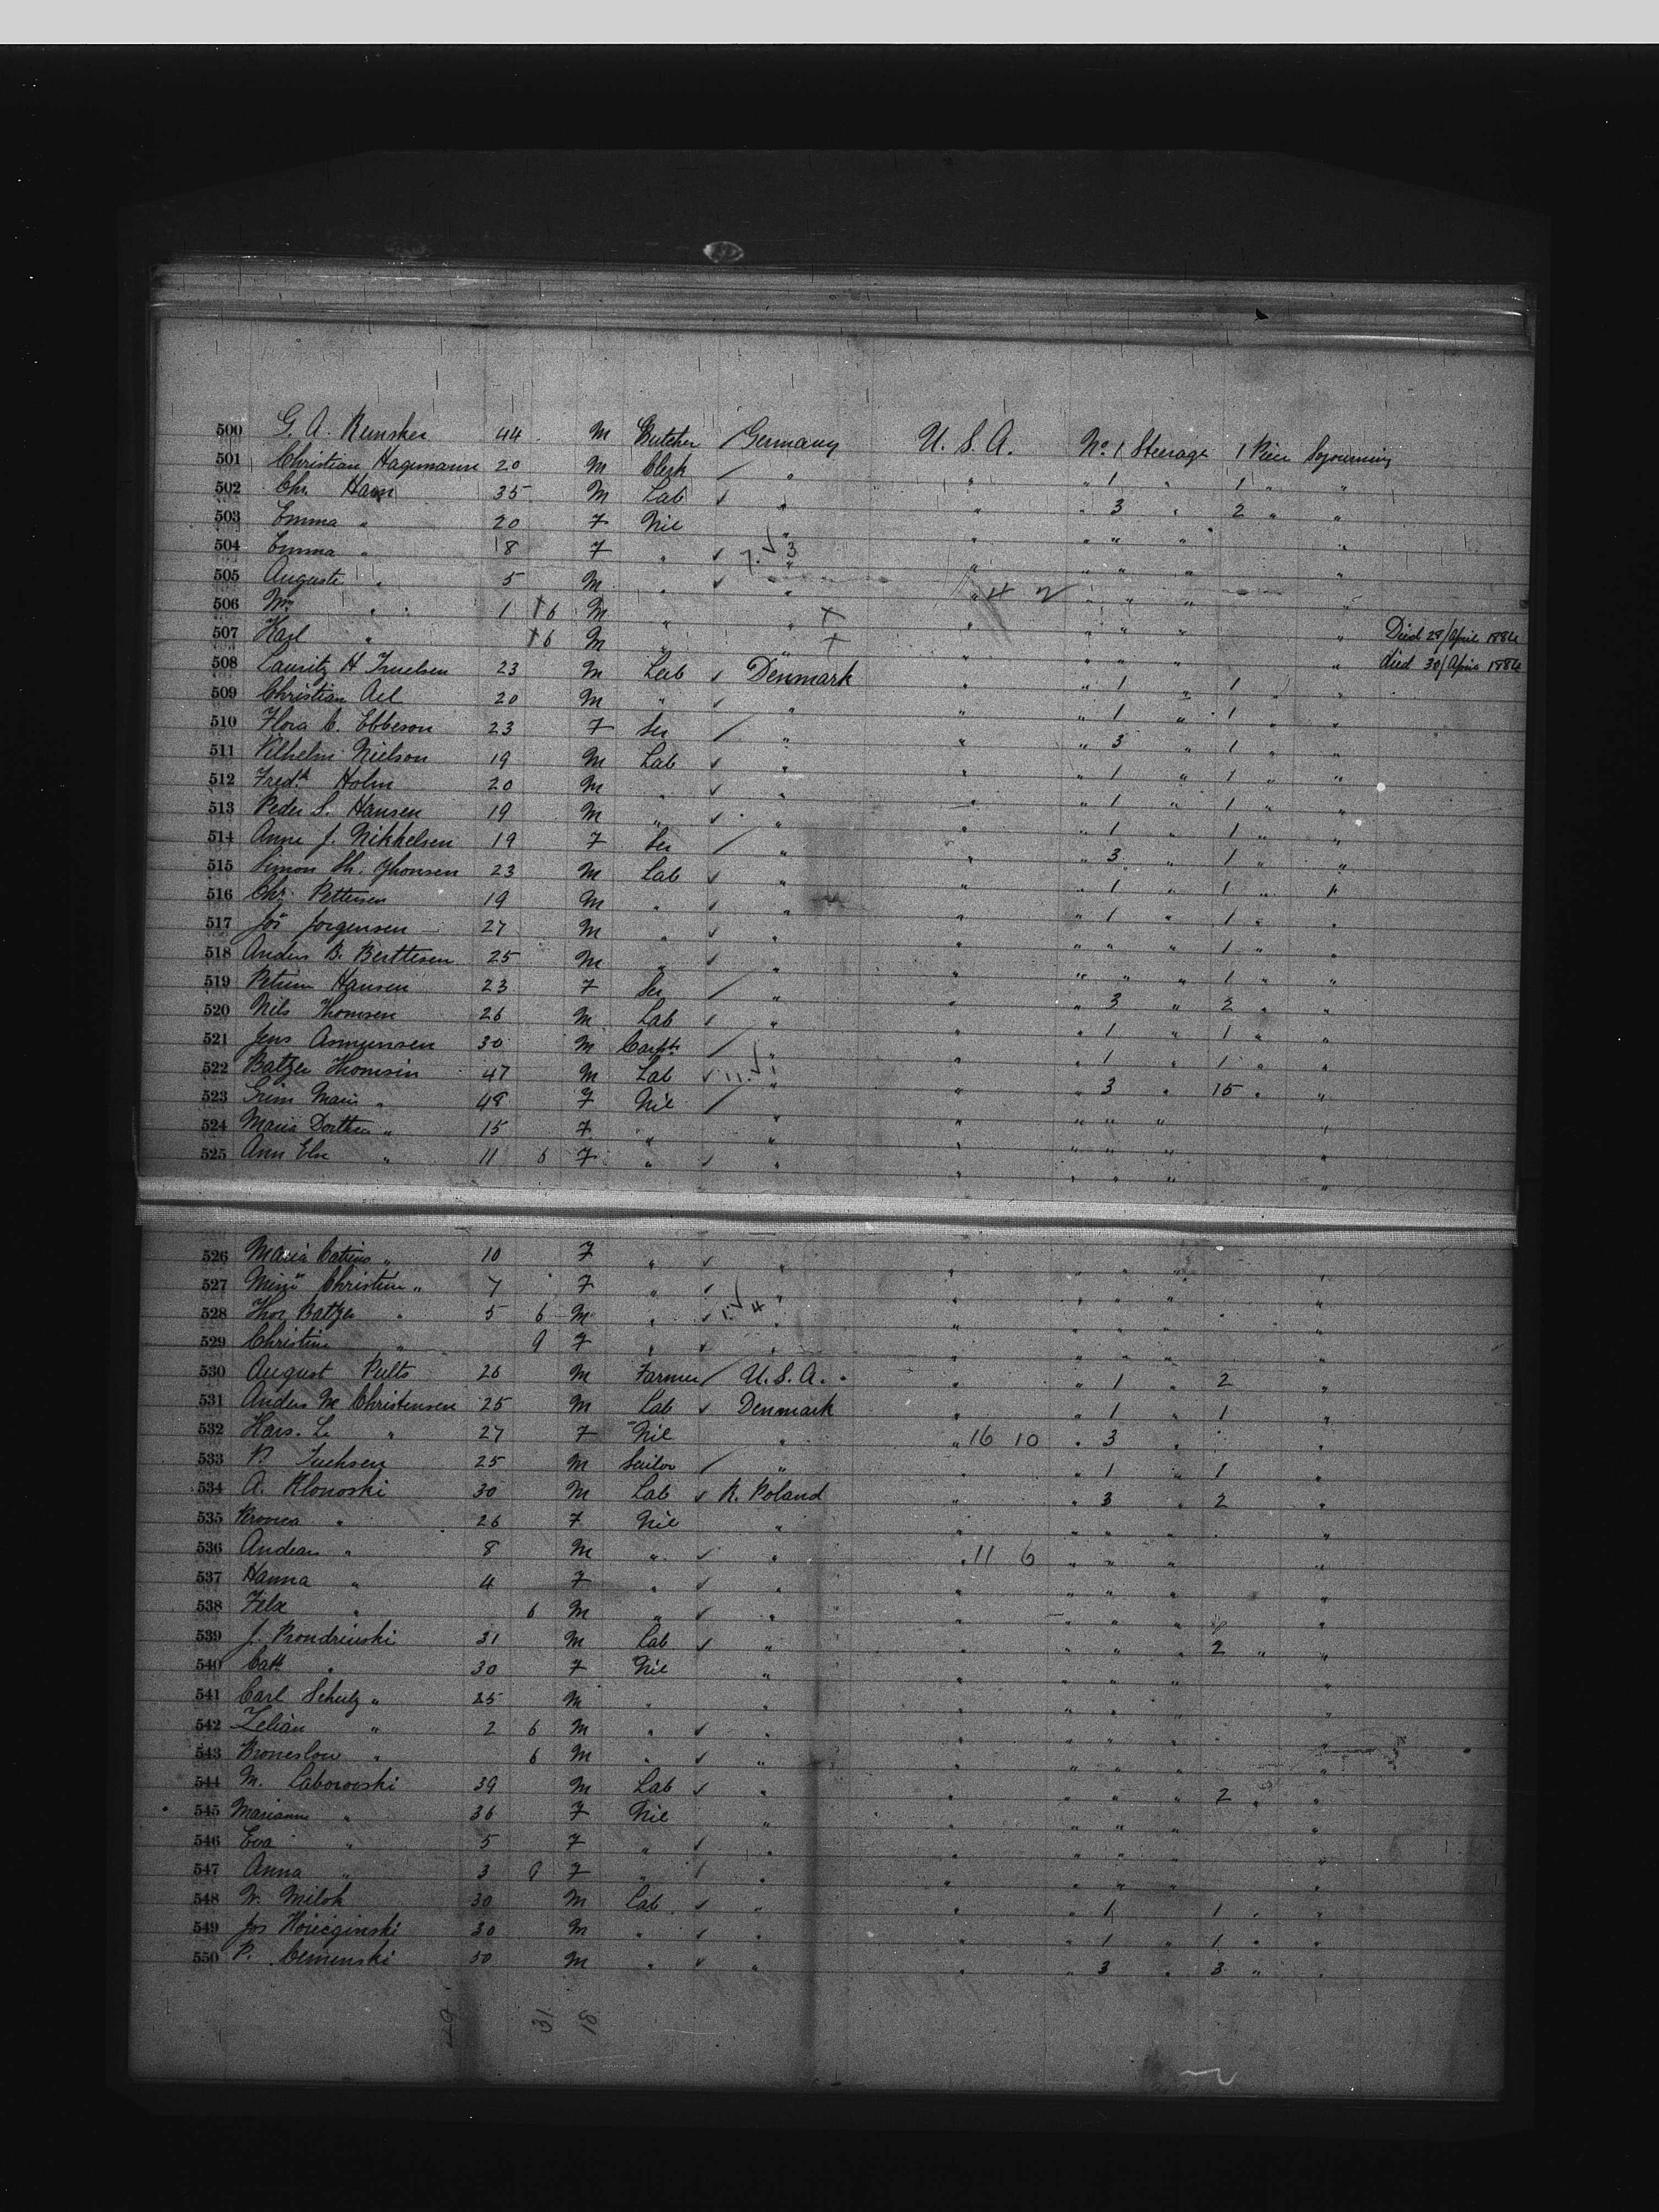 500 G. A. Remsker 44 M Butcher / Germany U.S.A. No. 1 Steerage 1 Piece Sojourning
501 Christian Hagemann 20 M Clerk / " " " 1 " 1 " "
502 Chr. Ham 35 M Lab ✓ " " " 3 " 2 " "
503 Emma " 20 F Nil " " " " " "
504 Emma " 18 F " ✓ " " " " " "
505 Auguste " 5 M " ✓ " " 4 2 " " " "
506 Wm " 1 6 M " " X " " " " " Died 28/April 1884
507 Karl " 6 M " " X " " " " " died 30/April 1884
508 Lauritz H Truelsen 23 M Lab ✓ Denmark " " 1 " 1 " "
509 Christian Ael 20 M " ✓ " " " 1 " 1 " "
510 Flora C. Ebbeson 23 F Ser / " " " 3 " 1 " "
511 Vilhelm Nielson 19 M Lab ✓ " " " 1 " 1 " "
512 Fredk Holm 20 M " ✓ " " " 1 " 1 " "
513 Peder S. Hansen 19 M " ✓ " " " 1 " 1 " "
514 Anne J. Nikkelsen 19 F Ser / " " " 3 " 1 " "
515 Simon Th. Jhonsen 23 M Lab ✓ " " " 1 " 1 " "
516 Chr. Pettersen 19 M " ✓ " " " 1 " 1 " "
517 Jos Jorgensen 27 M " ✓ " " " " " 1 " "
518 Anders B. Berttesen 25 M " ✓ " " " " " 1 " "
519 Hansen 23 F Ser / " " " 3 " 2 " "
520 Nils Thomsen 26 M Lab ✓ " " " 1 " 1 " "
521 Jens Asmunsen 30 M Carpt / " " " 1 " 1 " "
522 Batzer Thomsin 47 M Lab ✓ " " " 3 " 15 " "
523 Maria " 48 F Nil / " " " " " "
524 Maria Dorthea " 15 F " " " " " " "
525 Ann Else " 11 6 F " ✓ " " " " " "
526 Maria Catrine " 10 F " ✓ " " " " " "
527 Christine " 7 F " ✓ " " " " " "
528 Thor Batzer " 5 6 M " ✓ 4 " " " " " "
529 Christine " 9 F " ✓ " " " " " "
530 August Pults 26 M Farmer / U.S.A. " " 1 " 2 "
531 Anders M Christensen 25 M Lab ✓ Denmark " " 1 " 1 "
532 " 27 F Nil " " 16 10 " 3 " "
533 P. Tuchsen 25 M Sailor / " " " 1 " 1 "
534 A. Klonoski 30 M Lab ✓ R. Poland " " 3 " 2 "
535 " 26 F Nil " " " " " "
536 Andeas " 8 M " ✓ " " 11 6 " " " "
537 Hanna " 4 F " ✓ " " " " " "
538 Felx " 6 M " ✓ " " " " " "
539 J. Prondrinski 31 M Lab ✓ " " " " " 2 " "
540 Cath " 30 F Nil " " " " " "
541 Carl Schulz " 25 M " " " " " " "
542 Zelian " 2 6 M " ✓ " " " " " "
543 Broneslow " 6 M " ✓ " " " " " "
544 M. Laborowski 39 M Lab ✓ " " " " " 2 " "
545 Marianne " 36 F Nil " " " " " "
546 Eva " 5 F " ✓ " " " " " "
547 Anna " 3 9 F " / " " " " " "
548 W. Miloh 30 M Lab ✓ " " " 1 " 1 " "
549 Jos 30 M " ✓ " " " 1 " 1 " "
550 P. Ceminski 50 M " ✓ " " " 3 " 3 " "
31 18